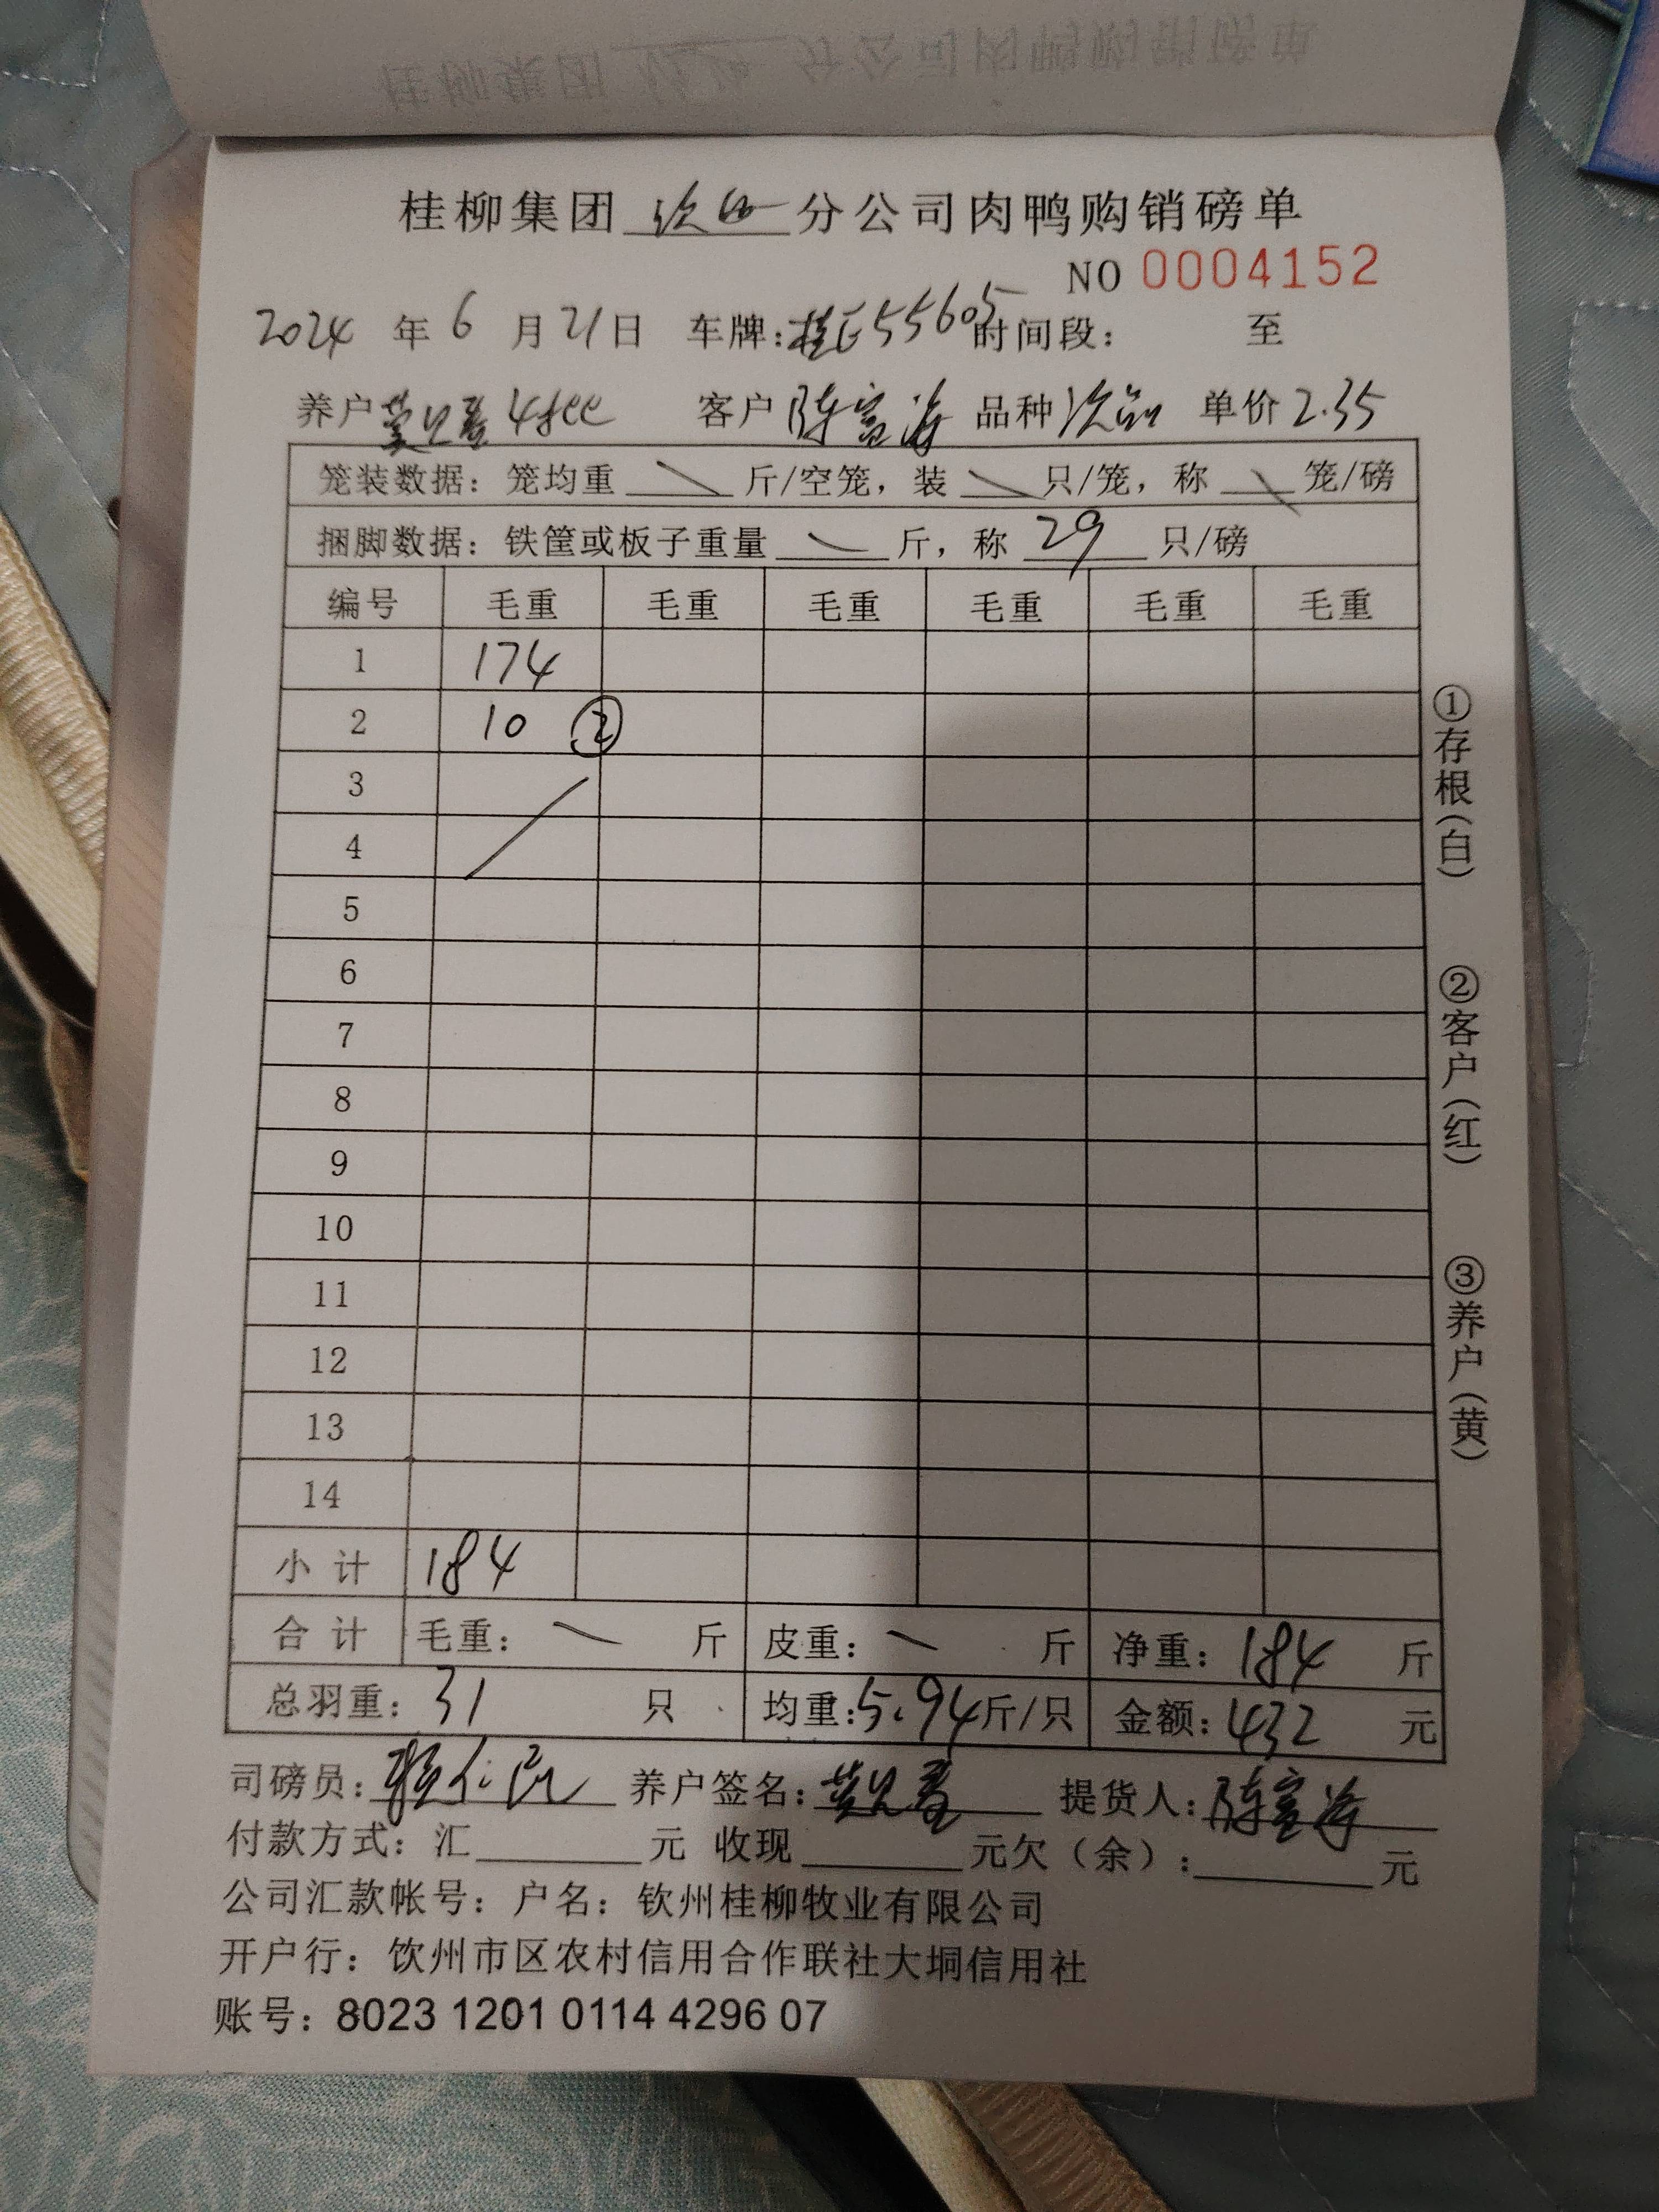 桂柳集团 钦州 分公司肉鸭购销磅单
NO 0004152
2024 年 6 月 21 日 车牌：桂E55605 时间段： 至
养户 客户 陈富海 品种 次品 单价 2.35
笼装数据：笼均重 斤/空笼，装 只/笼，称 笼/磅
捆脚数据：铁筐或板子重量 斤，称 29 只/磅
编号 毛重 毛重 毛重 毛重 毛重 毛重
1 174
2 10 ②
3
4
5
6
7
8
9
10
11
12
13
14
小计 184
合计 毛重： 斤 皮重： 斤 净重：184 斤
总羽重：31 只 均重：5.94斤/只 金额：432 元
司磅员： 养户签名： 提货人：陈富海
付款方式：汇 元 收现 元欠（余）： 元
公司汇款帐号：户名：钦州桂柳牧业有限公司
开户行：饮州市区农村信用合作联社大垌信用社
账号：8023 1201 0114 4296 07
①存根（白）
②客户（红）
③养户（黄）